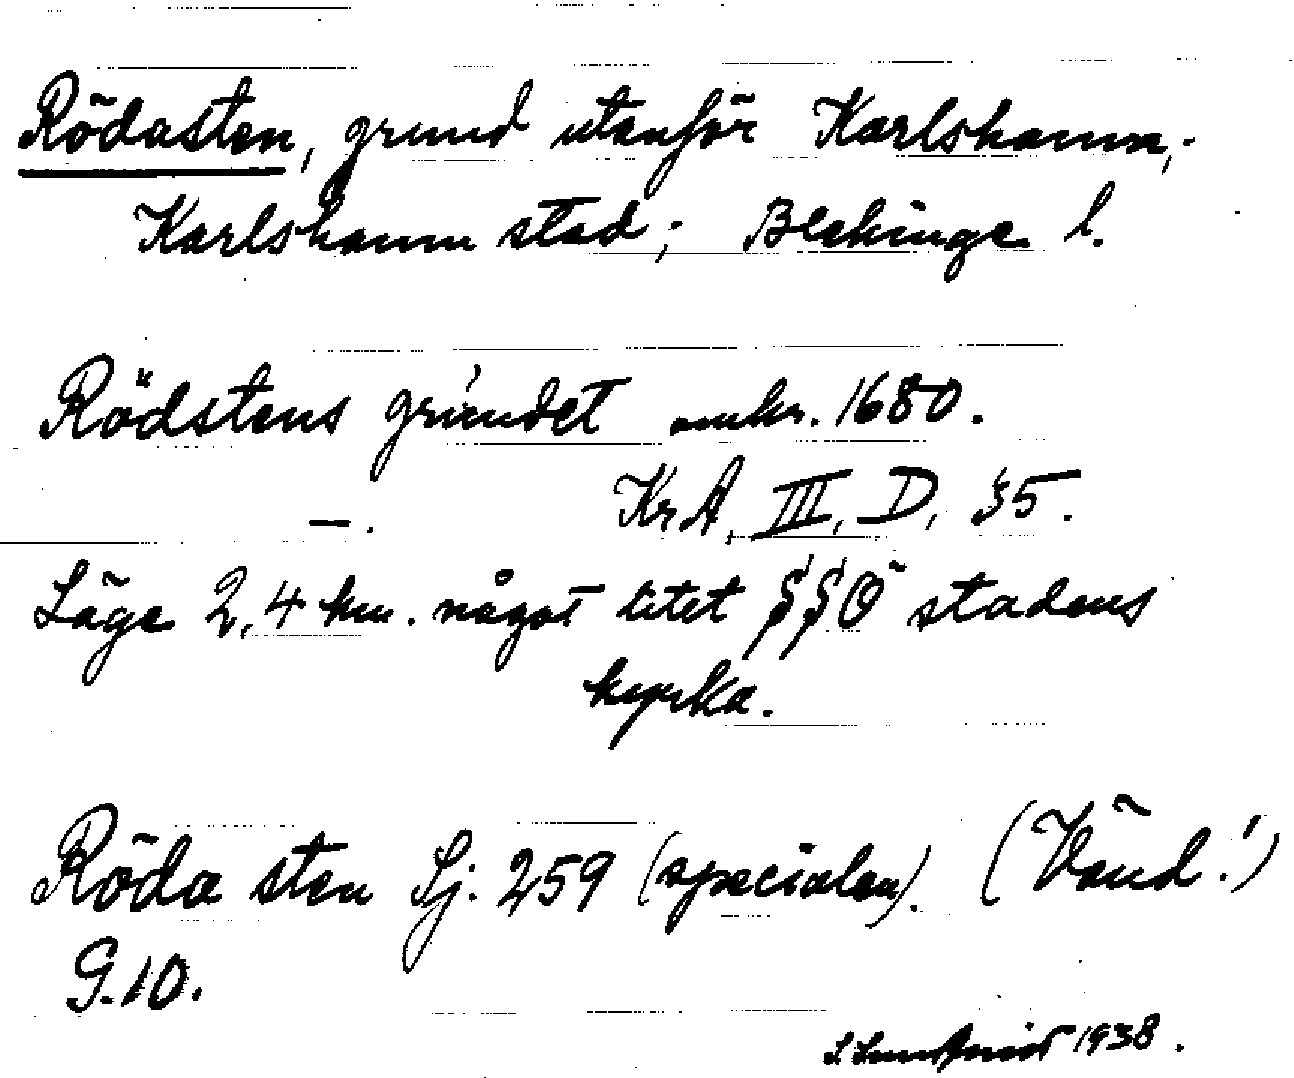 Rödasten, grund utanför Karlshamn,
Karlshamn stad; Blekinge l.
Rödstens grúndet omkr. 1680.
— . KrA, III, D, §5.
Läge 2,4 km. något litet SSÖ stadens
kyrka.
Röda sten Sj. 259 (specialen). (Vänd!)
G.10.
1938.